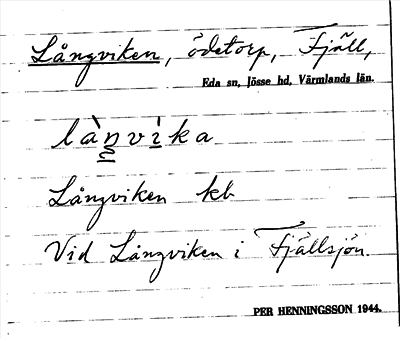 Långviken, ödetorp, Fjäll,
Eda sn, Jösse hd, Värmlands län.
làŋvìka
Långviken kb
Vid Långviken i Fjällsjön.
PER HENNINGSSON 1944.